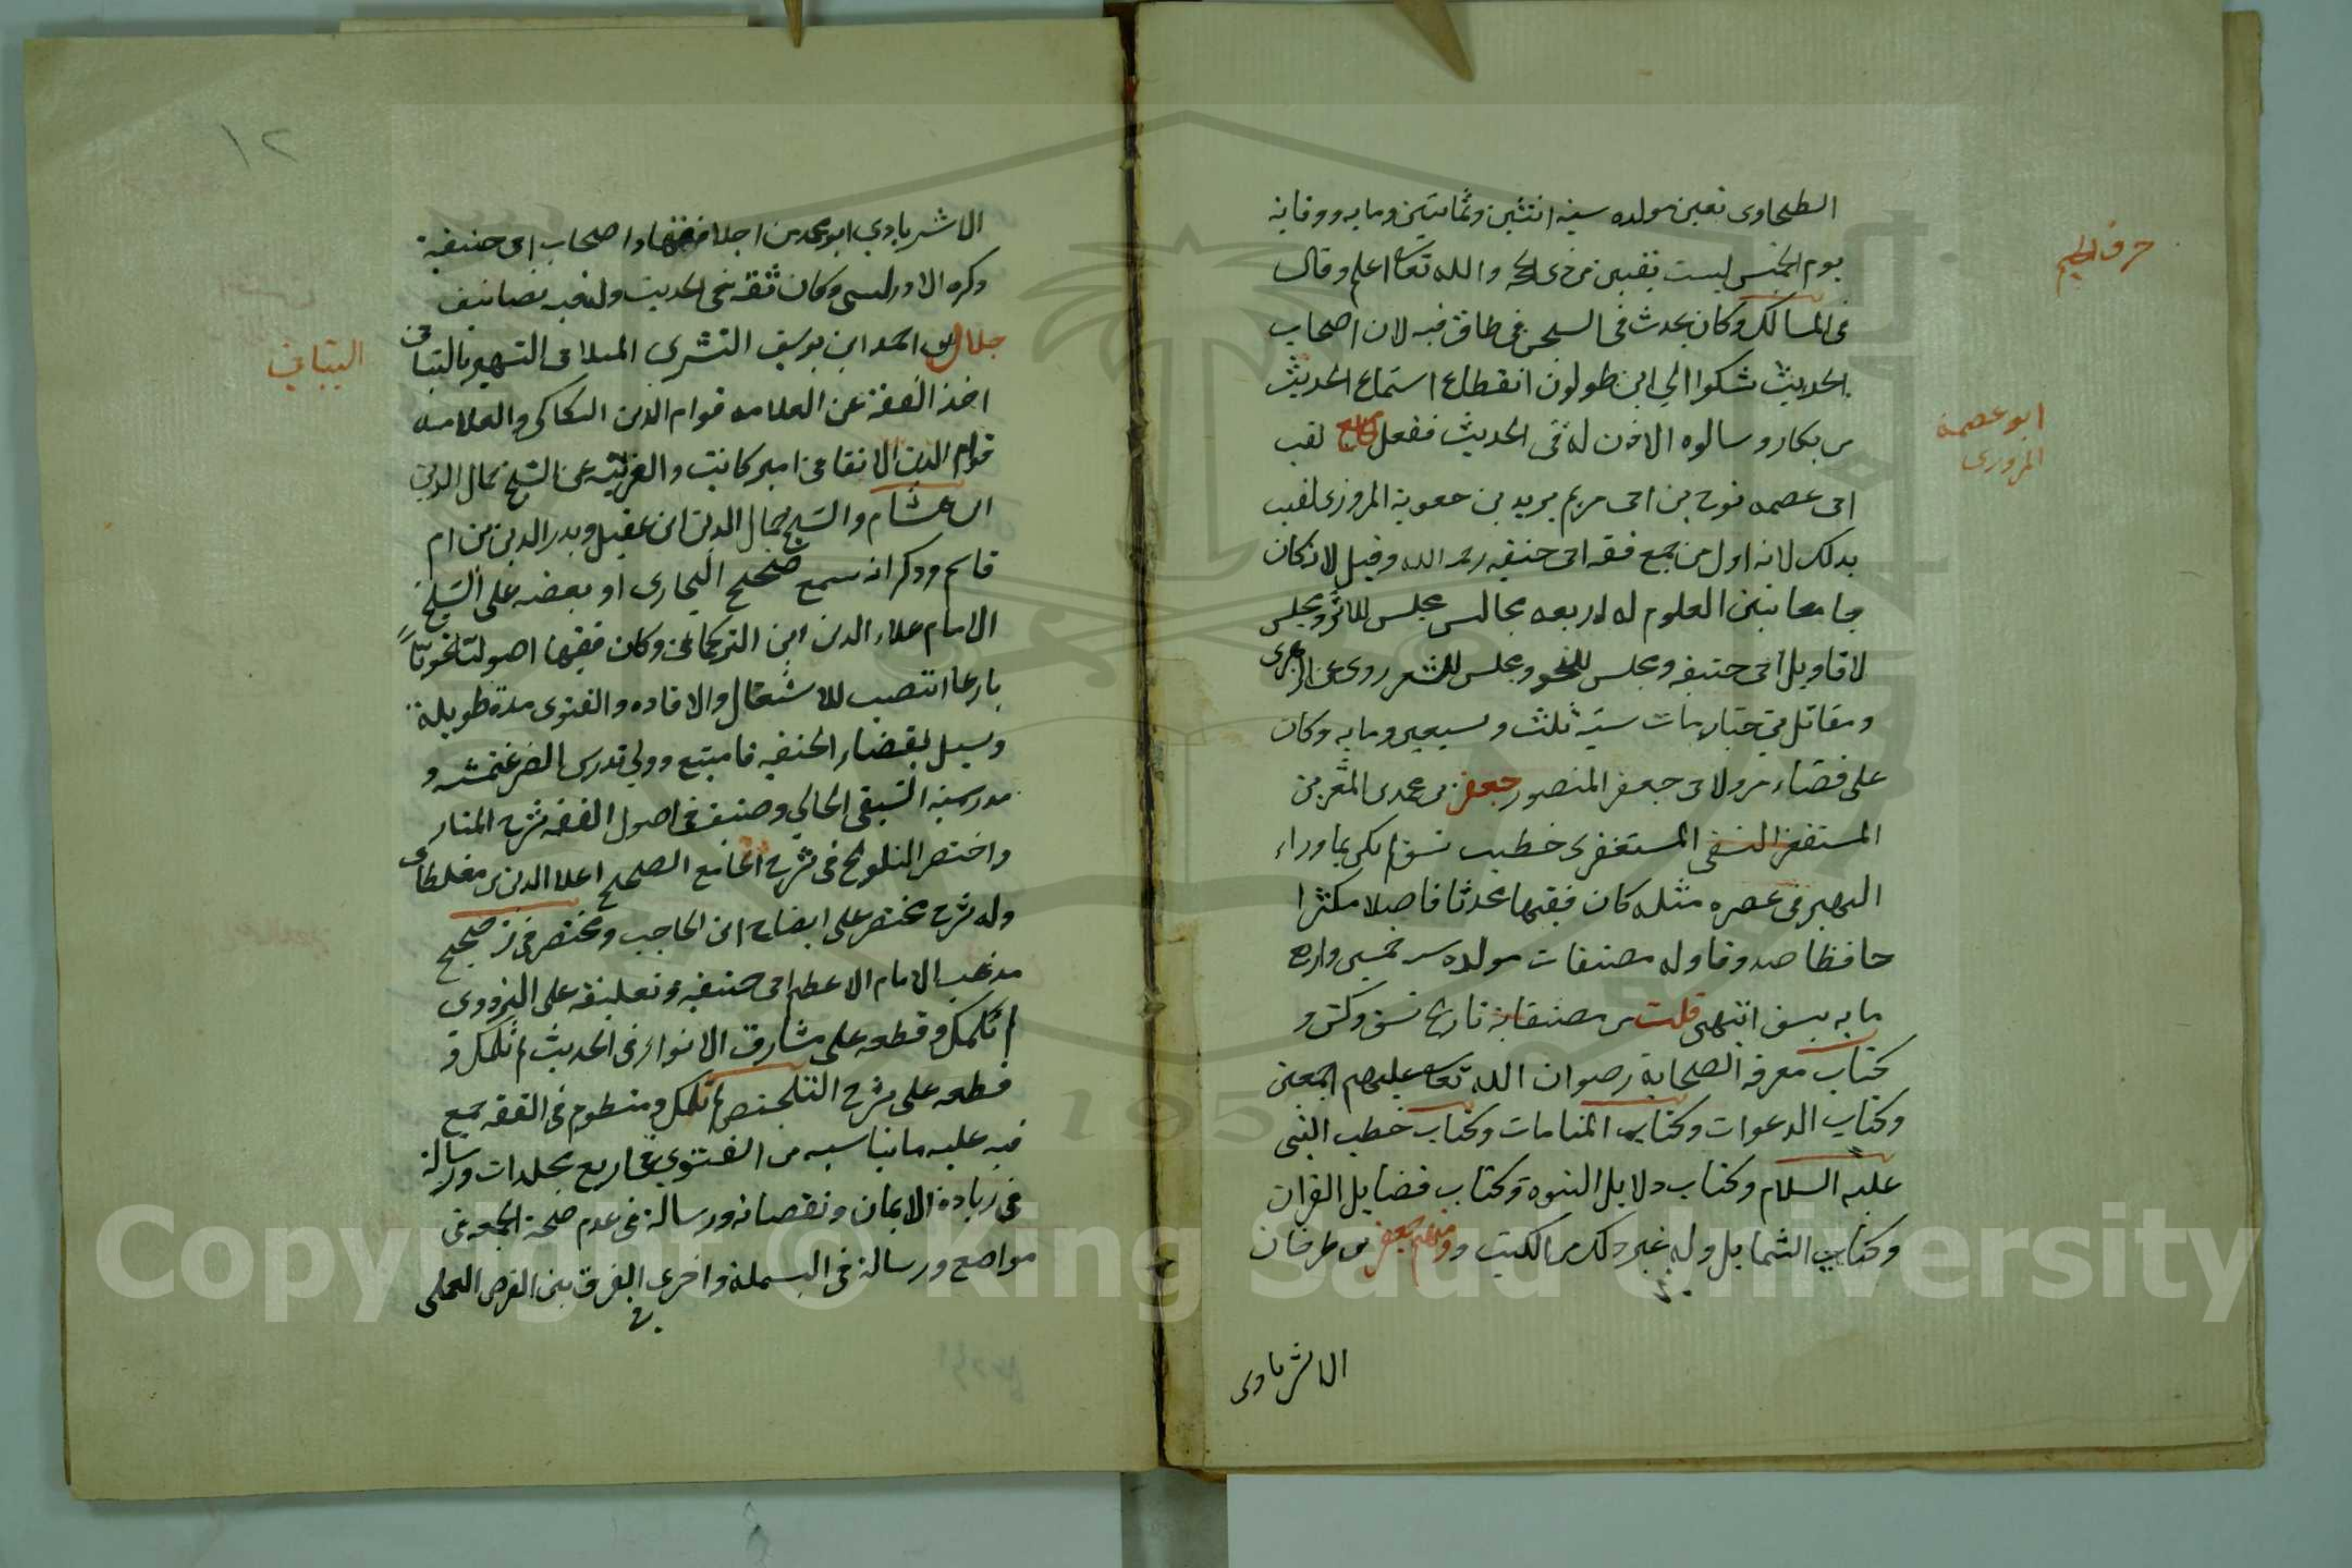 حرف الجيم
الطحاوى تعين مولده سنه اثنتين وثمانين وما به ووفاته
يوم الخميس لست بقين من ذى الحجه والله تعالى اعلم وقال
فى المسالك وكان يحدث فى السجن فى طاق فيه لان اصحاب
الحديث شكوا الى ابن طولون انقطاع استماع الحديث
من بكار وسالوه الاذن له فى الحديث ففعل جامع لقب
ابو عصمه
المروزى
ابى عصمه نوح بن ابى مريم يزيد بن معوية المروزى لقب
بذلك لانه اول من جمع فقه ابى حنيفه رحمه الله وقيل لانه كان
جامعا بين العلوم له اربعه مجالس مجلس للاثر ومجلس
لاقاويل ابى حنيفه ومجلس للنحو ومجلس للشعر روى عن الزهرى
ومقاتل بن حيان مات سنة ثلث وسبعين وما به وكان
على قضاء مرو لابى جعفر المنصور جعفر بن محمد بن المعتز بن
المستغفر النسفى المستغفرى خطيب نسف لم يكن بما وراء
النهر فى عصره مثله كان فقيها محدثا فاضلا مكثرا
حافظا صدوقا وله مصنفات مولده سنه خمسين واربع
ما به بنسف انتهى قلت من مصنفاته تاريخ نسف وكش و
كتاب معرفة الصحابة رضوان الله تعالى عليهم اجمعين
وكتاب الدعوات وكتاب المنامات وكتاب خطب النبى
عليه السلام وكتاب دلايل النبوة وكتاب فضايل القران
وكتاب الشمايل وله غير ذلك من الكتب ومنهم جعفر بن طرخان
الاشرباوى
١٢
الاشربادي ابو محمد من اجلا فقهاء اصحاب ابى حنيفة
ذكره الادريسى وكان ثقه فى الحديث وله فيه تصانيف
جلال بن احمد ابن يوسف التشرى الميلاقى الشهير بالتبانى
التبانى
اخذ الفقه عن العلامه قوام الدين الكاكى والعلامه
قوام الدين الاتقانى امير كاتب والعربية عن الشيخ جمال الدين
ابن هشام والشيخ جمال الدين ابن عقيل وبدر الدين بن ام
قاسم وذكر انه سمع صحيح البخارى او بعضه على الشيخ
الامام علاء الدين ابن التركمانى وكان فقيها اصوليا نحويا
بارعا انتصب للاشتغال والافاده والفتوى مدة طويلة
وسيل بقضاء الحنفيه فامتنع وولي تدريس الصرغتمشيه و
مدرسة السيفى الجالي وصنف فى اصول الفقه شرح المنار
واختصر التلويح فى شرح الجامع الصحيح اعلا الدين مغلطاى
وله شرح مختصر على ايضاح ابن الحاجب ومختصر فى ترجيح
مذهب الامام الاعظم ابى حنيفه وتعليقه على البزدوى
لم تكمل وقطعه على مشارق الانوار فى الحديث لم تكمل و
قطعه على شرح التلخيص لم تكمل ومنظوم فى الفقه جمع
فيه عليه ما يناسبه من الفتوى فى اربع مجلدات ورسالة
فى زيادة الايمان ونقصانه ورسالة فى عدم صحة الجمعه فى
مواضع ورسالة فى البسملة واخرى فى الفرق بين الفرض العملى
Copyright © King Saud University